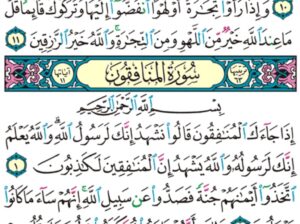 ١٠ وَإِذَا رَأَوْا۟ تِجَـٰرَةً أَوْ لَهْوًا ٱنفَضُّوٓا۟ إِلَيْهَا وَتَرَكُوكَ قَآئِمًا قُلْ
مَا عِندَ ٱللَّهِ خَيْرٌ مِّنَ ٱللَّهْوِ وَمِنَ ٱلتِّجَـٰرَةِ وَٱللَّهُ خَيْرُ ٱلرَّٰزِقِينَ ١١
سُورَةُ المُنَافِقُون
بِسْمِ ٱللَّهِ ٱلرَّحْمَـٰنِ ٱلرَّحِيمِ
إِذَا جَآءَكَ ٱلْمُنَـٰفِقُونَ قَالُوا۟ نَشْهَدُ إِنَّكَ لَرَسُولُ ٱللَّهِ وَٱللَّهُ يَعْلَمُ
إِنَّكَ لَرَسُولُهُۥ وَٱللَّهُ يَشْهَدُ إِنَّ ٱلْمُنَـٰفِقِينَ لَكَـٰذِبُونَ ١
ٱتَّخَذُوٓا۟ أَيْمَـٰنَهُمْ جُنَّةً فَصَدُّوا۟ عَن سَبِيلِ ٱللَّهِ إِنَّهُمْ سَآءَ مَا كَانُوا۟